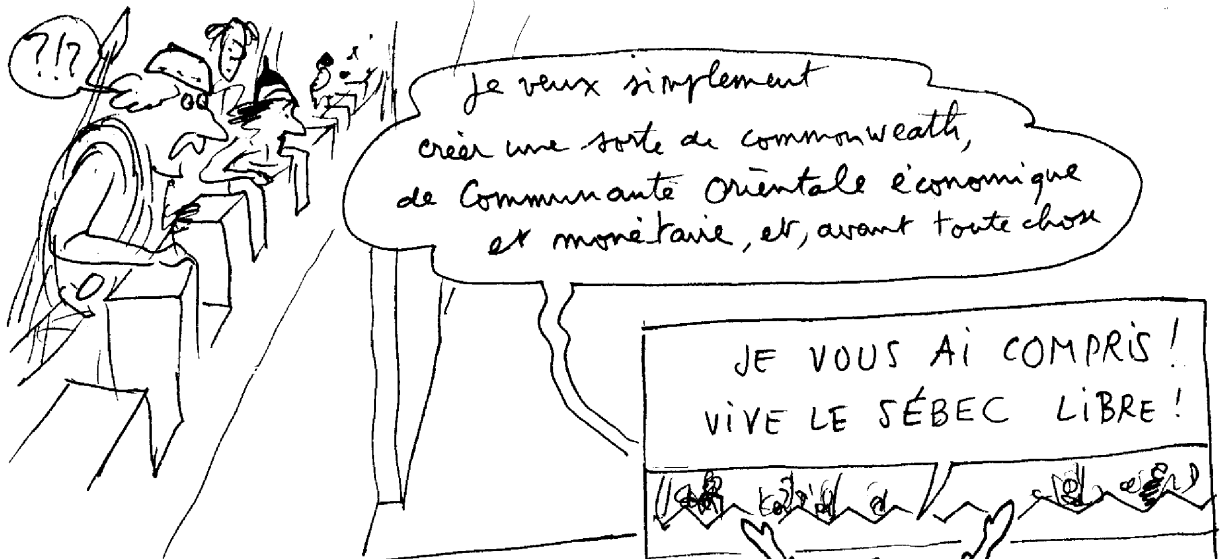 ?!?
Je veux simplement
créer une sorte de commonweath,
de Communauté Orientale économique
et monétaire, et, avant toute chose
JE VOUS AI COMPRIS !
VIVE LE SÉBEC LIBRE !